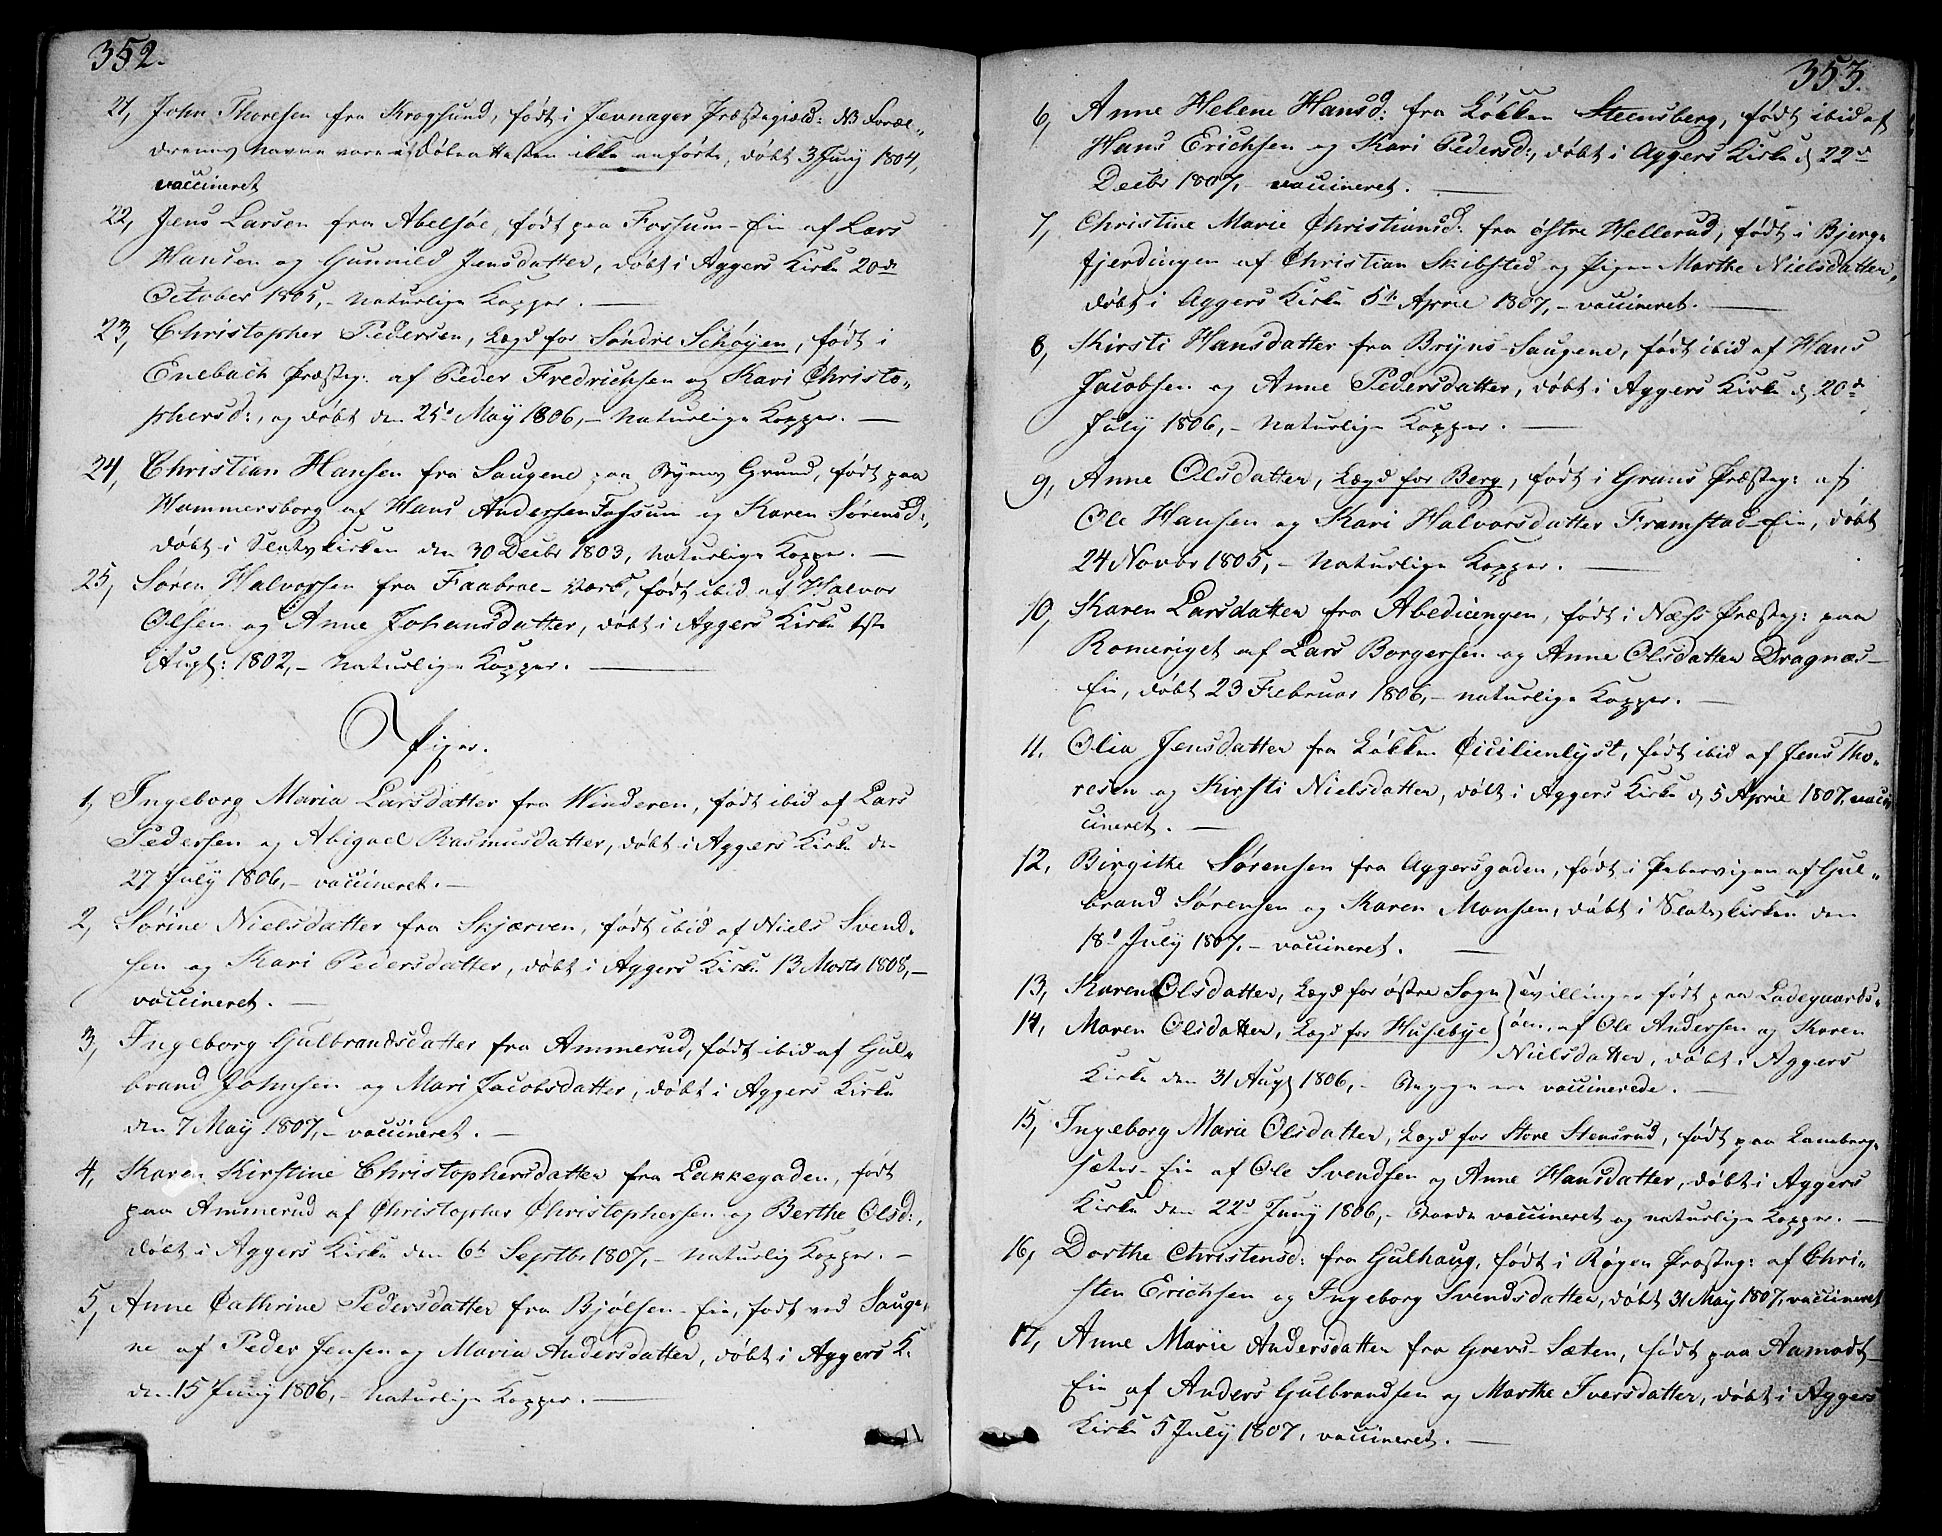 352.
21, John Thoresen fra Krogsund, født i Jevnager Præstegield: NB Foræl-
drenes Navne vare i Døbeattesten ikke anførte, døbt 3 Juny 1804,
vaccineret
22, Jens Larsen fra Abelsøe, født paa Fossum-Eie af Lars
Hansen og Gunnild Jensdatter, døbt i Aggers Kirke 20de
October 1805, - naturlige Kopper.
23, Christopher Pedersen, Lægd for Søndre Schøyen, født i
Enebach Præsteg: af Peder Fredrichsen og Kari Christo-
phersd:, og døbt den 25de May 1806, - naturlige Kopper.
24, Christian Hansen fra Saugene paa Byens Grund, født paa
Hammersborg af Hans Andersen Fossum og Karen Sørensd:,
døbt i Slotskirken den 30 Decbr 1803, naturlige Kopper.
25, Søren Halvorsen fra Faabroe-Værk, født ibid af Halvor
Olsen og Anne Johansdatter, døbt i Aggers Kirke 1ste
Augst: 1802, - naturlige Kopper.
Piger.
1, Ingeborg Maria Larsdatter fra Winderen, født ibid af Lars
Pedersen og Abigael Rasmusdatter, døbt i Aggers Kirke den
27 July 1806, - vaccineret.
2, Sørine Nielsdatter fra Skjærven, født ibid af Niels Svend-
sen og Kari Pedersdatter, døbt i Aggers Kirke 13 Marts 1808, -
vaccineret.
3, Ingeborg Gulbrandsdatter fra Ammerud, født ibid af Gul-
brand Johnsen og Mari Jacobsdatter, døbt i Aggers Kirke
den 7 May 1807, - vaccineret.
4, Karen Kirstine Christophersdatter fra Lakkegaden, født
paa Ammerud af Christopher Christophersen og Berthe Olsd:,
døbt i Aggers Kirke den 6te Septbr 1807, - naturlig Kopper.
5, Anne Cathrine Pedersdatter fra Bjølsen-Eie, født ved Sauge-
ne af Peder Jensen og Maria Andersdatter, døbt i Aggers K.
den 15 Juny 1806, - naturlige Kopper.
353.
6, Anne Helene Hansd: fra Løkken Steensberg, født ibid af
Hans Erichsen og Kari Pedersd:, døbt i Aggers Kirke d 22de
Decbr 1807, - vaccineret.
7, Christine Marie Christiansd: fra østre Hellerud, født i Bjerg-
fjerdingen af Christian Skibsted og Pigen Marthe Nielsdatter,
døbt i Aggers Kirke 5te April 1807, - vaccineret.
8, Kirsti Hansdatter fra Bryns-Saugene, født ibid af Hans
Jacobsen og Anne Pedersdatter, døbt i Aggers Kirke d 20de
July 1806, - naturlige Kopper.
9, Anne Olsdatter, Lægd for Berg, født i Grans Præsteg: af
Ole Hansen og Kari Halvorsdatter Framstad-Eie, døbt
24 Novbr 1805, - naturlige Kopper.
10, Karen Larsdatter fra Abediengen, født i Næss Præsteg: paa
Romeriget af Lars Borgersen og Anne Olsdatter Dragnæs-
Eie, døbt 23 Februar 1806, - naturlige Kopper.
11. Olia Jensdatter fra Løkken Cicilienlyst, født ibid af Jens Tho-
resen og Kirsti Nielsdatter, døbt i Aggers Kirke d 5 April 1807, vac-
cineret.
12. Birgithe Sørensen fra Aggersgaden, født i Pebervigen af Gul-
brand Sørensen og Karen Monsen, døbt i Slotskirken den
18de July 1807. - vaccineret.
13, Karen Olsdatter, Lægd for østre Sogn } Tvillinger født paa Ladegaards-
14, Maren Olsdatter, Lægd for Husebye } øen, af Ole Andersen og Karen
Nielsdatter, døbt i Aggers
Kirke den 31 Augst 1806, - Begge ere vaccinerede.
15, Ingeborg Marie Olsdatter, Lægd for Store Stensrud, født paa Lamberg-
sæter-Eie af Ole Svendsen og Anne Hansdatter, døbt i Aggers
Kirke den 22de Juny 1806, - Baade vaccineret og naturlige Kopper.
16, Dorthe Christensd: fra Gulhaug, født i Røgen Præsteg: af Chri-
sten Erichsen og Ingeborg Svendsdatter, døbt 31 May 1807, vaccineret
17, Anne Marie Andersdatter fra Grevs-Sæten, født paa Aamodt-
Eie af Anders Gulbrandsen og Marthe Iversdatter, døbt i Aggers
Kirke 5 July 1807, vaccineret.